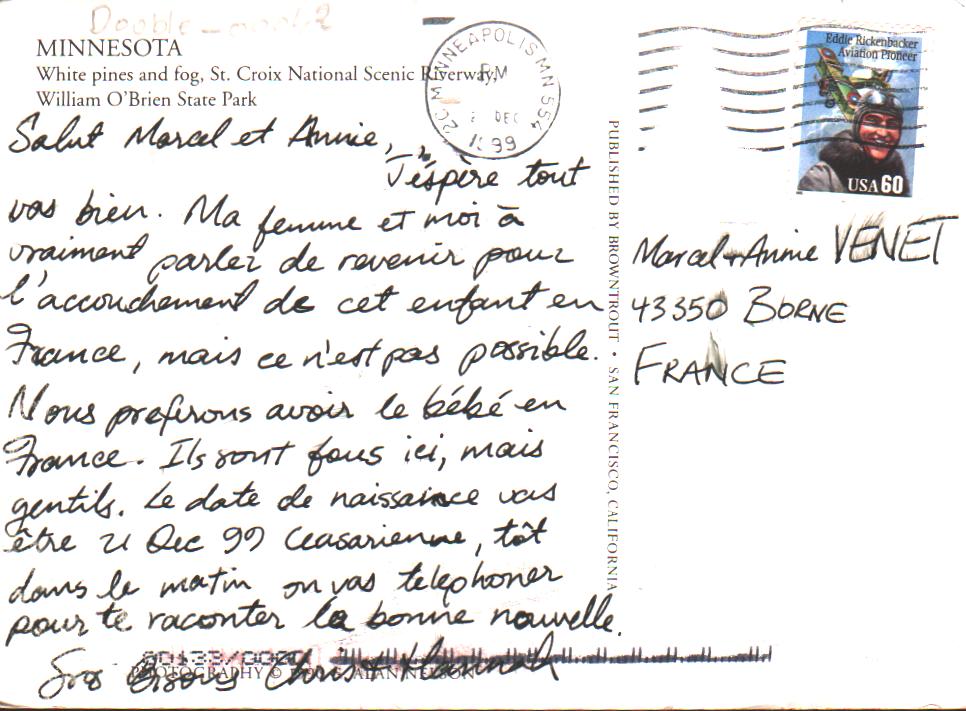 MINNESOTA
White pines and fog, St. Croix National Scenic Riverway,
William O'Brien State Park
MINNEAPOLIS MN 554
PM
DEC
1999
Eddie Rickenbacker
Aviation Pioneer
USA 60
Salut Marcel et Annie,
J'éspère tout
vas bien. Ma femme et moi à
vraiment parlez de revenir pour
l'accouchement de cet enfant en
France, mais ce n'est pas possible.
Nous preferons avoir le bébé en
France. Ils sont fous ici, mais
gentils. Le date de naissaince vas
être 21 Dec 99 Ceasarienne, tôt
dans le matin on vas telephoner
pour te raconter la bonne nouvelle.
Gros Bisous Chris + Hannah
PUBLISHED BY BROWNTROUT • SAN FRANCISCO, CALIFORNIA
Marcel + Annie VENET
43350 BORNE
FRANCE
PHOTOGRAPHY © ALAN NELSON